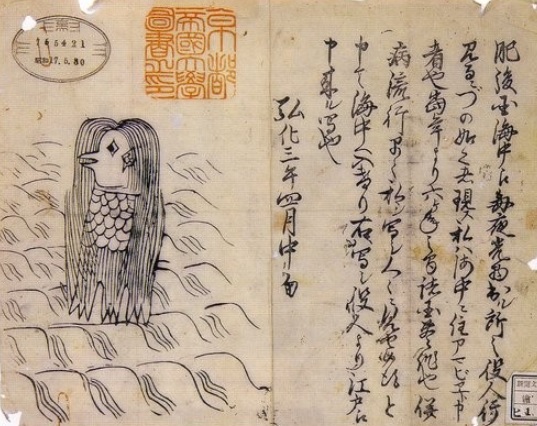 肥後国海中え毎夜光物出ル所之役人行
見るニづの如く者現ス私ハ海中ニ住アマビヱト申
者也当年より六ヶ年之間諸国豊作也併
病流行早々私シ写シ人々ニ見せ候得と
申て海中へ入けり右ハ写シ役人より江戸え
申来ル写也
弘化三年四月中旬
京都
帝國大學
圖書之印